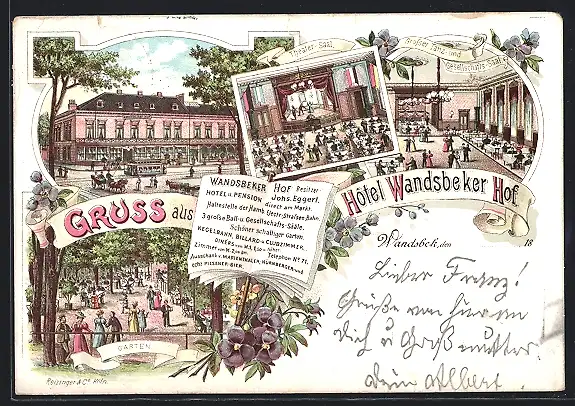 Theater-Saal.
Großer Tanz- und
Gesellschafts-Saal.
Gruss aus
Hôtel Wandsbeker Hof.
WANDSBEKER HOF Besitzer
HOTEL u. PENSION Johs. Eggerl.
direct am Markt.
Haltestelle der Hamb. Electr. Straßen Bahn.
3 große Ball- u. Gesellschafts-Säle.
Schöner schattiger Garten.
KEGELBAHN, BILLARD u. CLUBZIMMER.
DINERS von M.1,
Zimmer von M.
Telephon No 71.
Ausschank v. MARIENTHALER, NÜRNBERGER und
echt PILSENER-BIER.
Wandsbek, den 18
Lieber Franz!
Grüße von hier an
Dich u Großmutter.
Dein Albert.
GARTEN
Reisinger & Co.